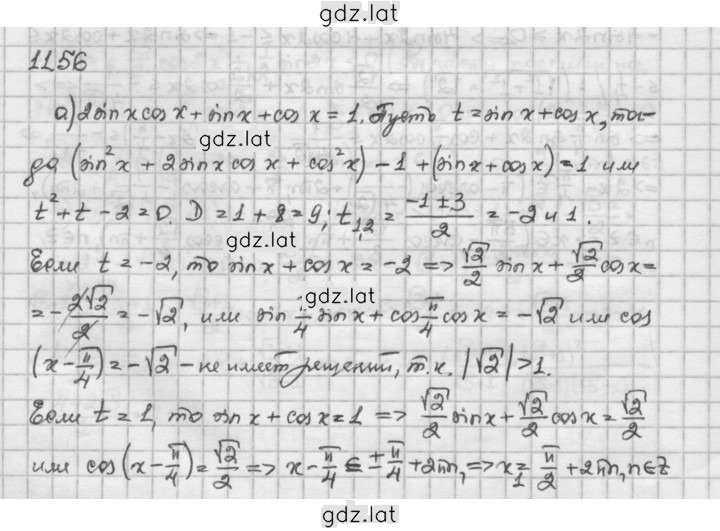 gdz.lat
1156
а) 2sin x cos x + sin x + cos x = 1. Пусть t = sin x + cos x, то-
gdz.lat
да (sin²x + 2sin x cos x + cos²x) - 1 + (sin x + cos x) = 1 или
t² + t - 2 = 0. D = 1 + 8 = 9; t₁,₂ = (-1 ± 3)/2 = -2 и 1.
gdz.lat
Если t = -2, то sin x + cos x = -2 => √2/2 sin x + √2/2 cos x =
gdz.lat
= - 2√2/2 = -√2, или sin π/4 sin x + cos π/4 cos x = -√2 или cos
(x - π/4) = -√2 - не имеет решений, т.к. |√2| > 1.
gdz.lat
Если t = 1, то sin x + cos x = 1 => √2/2 sin x + √2/2 cos x = √2/2
gdz.lat
или cos (x - π/4) = √2/2 => x - π/4 = ± π/4 + 2πn, => x₁ = π/2 + 2πn, n ∈ Z
gdz.lat